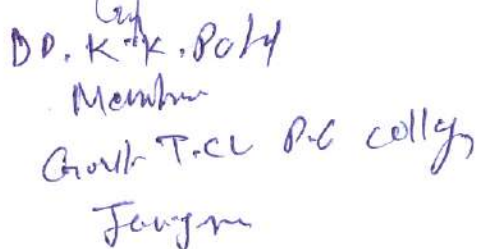 DD. K.K. Patel
Member
Govt. T.CL P.G College
Janjgir